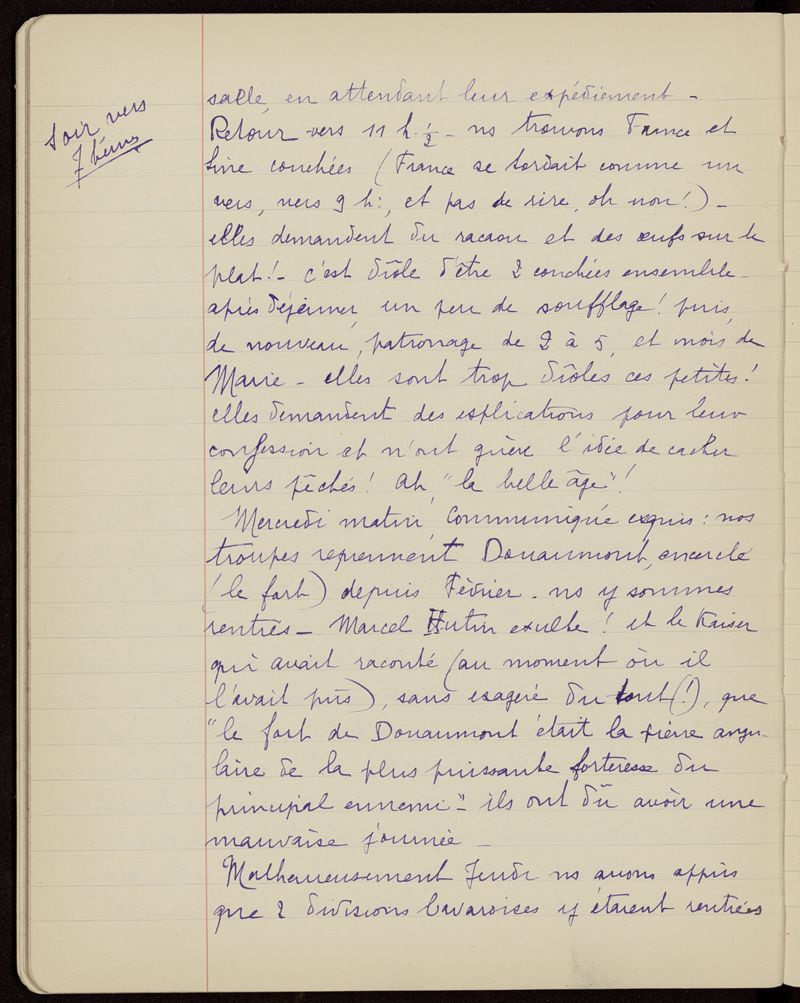 Soir vers
7 heures
salle, en attendant leur expédiement -
Retour vers 11 h. ½ - ns trouvons France et
couchées (France se tordait comme un
vers, vers 9 h:, et pas de rire, oh non!) -
elles demandent du racaou et des œufs sur le
plat! - c'est drôle d'être 2 couchées ensemble -
après déjeuner, un peu de soufflage! puis,
de nouveau, patronage de 2 à 5, et mois de
Marie - elles sont trop drôles ces petites!
elles demandent des explications pour leur
confession et n'ont guère l'idée de cacher
leurs péchés! Ah, "la belle âge"!
Mercredi matin, Communiqué exquis: nos
troupes reprennent Douaumont, encerclé
(le fort) depuis Février. ns y sommes
rentrés - Marcel Hutin exulte! et le Kaiser
qui avait raconté (au moment où il
l'avait pris), sans exagéré du tout (!), que
"le fort de Douaumont était la pierre angu-
laire de la plus puissante forteresse du
principal ennemi" - ils ont dû avoir une
mauvaise journée -
Malheureusement Jeudi ns avons appris
que 2 divisions bavaroises y étaient rentrées